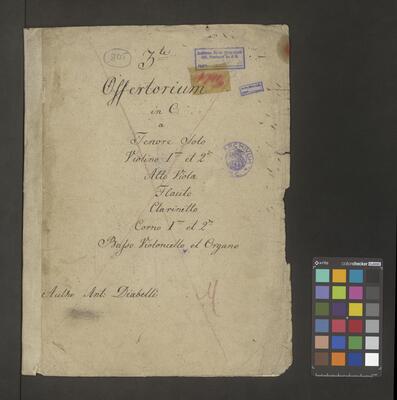 3te
Offertorium
in C.
a
Tenore Solo
Violino 1mo et 2do
Alto Viola
Flauto
Clarinetto
Corno 1mo et 2do
Basso Violoncello et Organo
Autho Ant: Diabelli
x-rite
colorchecker CLASSIC